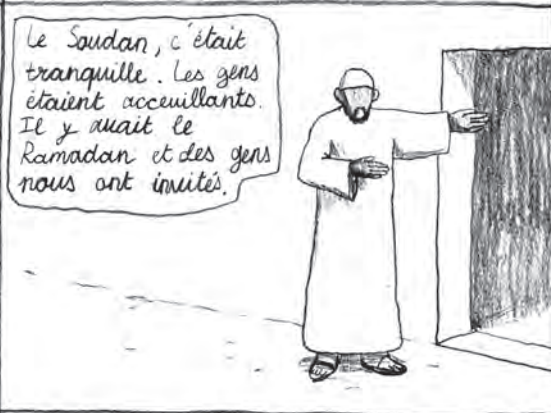 Le Soudan, c'était
tranquille. Les gens
étaient acceuillants.
Il y avait le
Ramadan et des gens
nous ont invités.